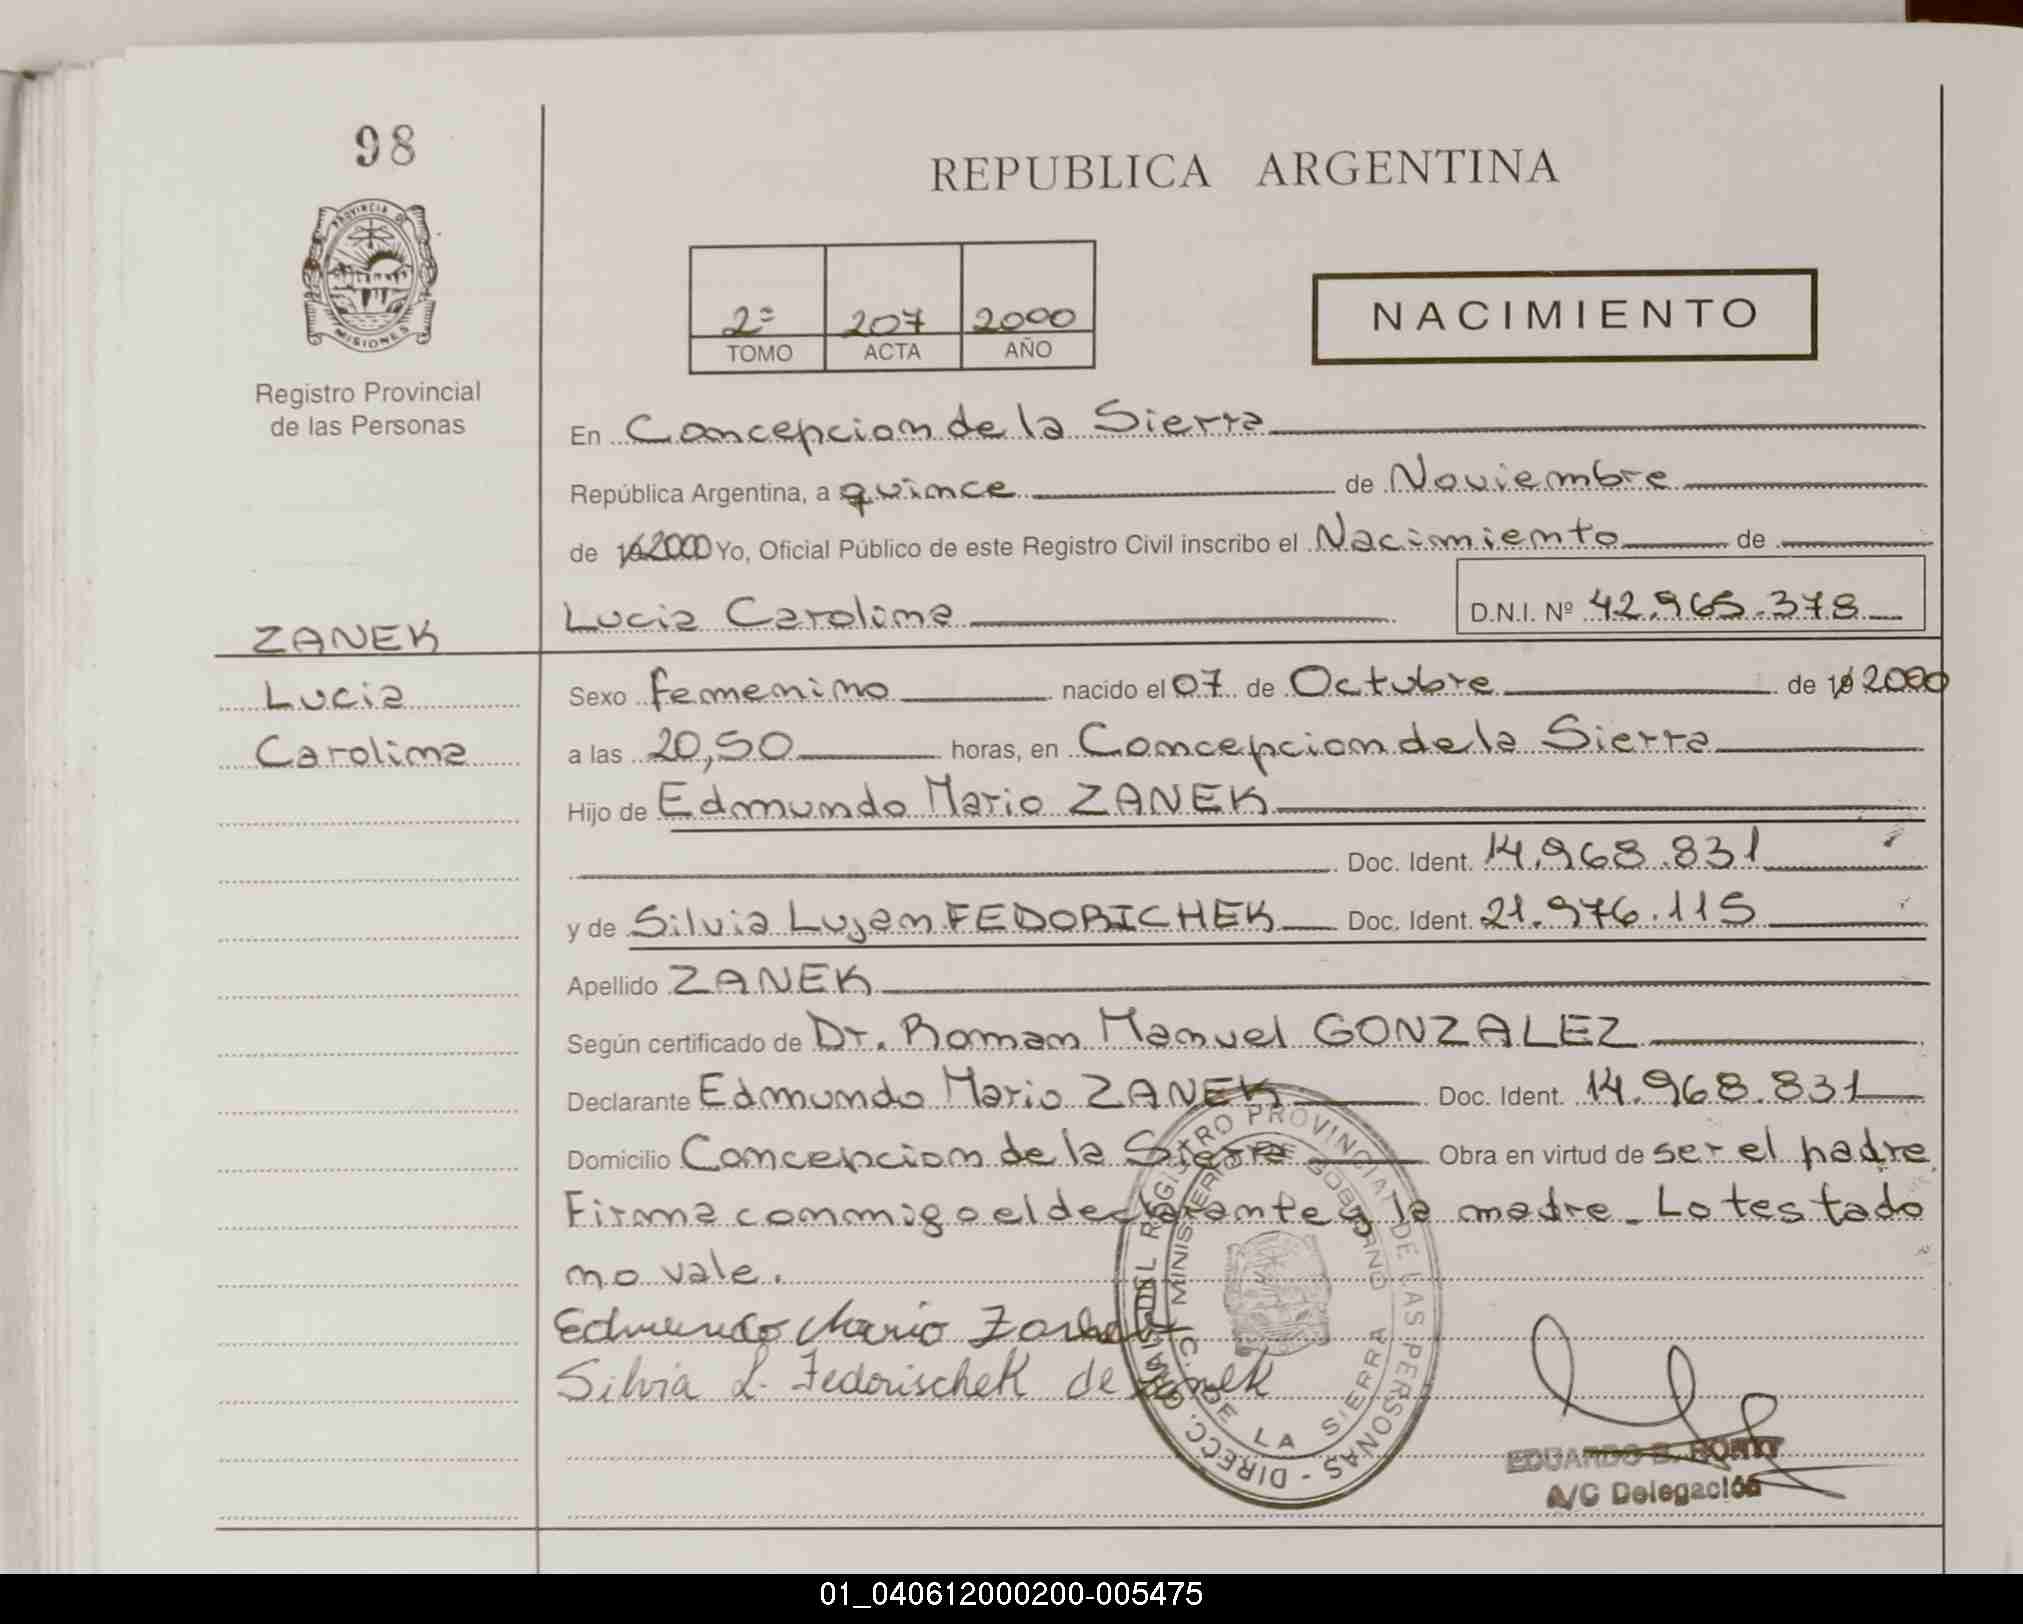 98
REPUBLICA ARGENTINA
PROVINCIA DE
MISIONES
2º 207 2000
TOMO ACTA AÑO
NACIMIENTO
Registro Provincial
de las Personas
En Concepcion de la Sierra
República Argentina, a quince de Noviembre
de 2000 Yo, Oficial Público de este Registro Civil inscribo el Nacimiento de
Lucia Carolina D.N.I. Nº 42.965.378
ZANEK
Lucia
Carolina
Sexo femenino nacido el 07 de Octubre de 2000
a las 20,50 horas, en Concepcion de la Sierra
Hijo de Edmundo Mario ZANEK
Doc. Ident. 14.968.831
y de Silvia Lujan FEDORICHEK Doc. Ident. 21.976.115
Apellido ZANEK
Según certificado de Dr. Roman Manuel GONZALEZ
Declarante Edmundo Mario ZANEK Doc. Ident. 14.968.831
Domicilio Concepcion de la Sierra Obra en virtud de ser el padre.
Firma conmigo el declarante y la madre_ Lo testado
no vale.
Edmundo Mario
Silvia L. FedorischeK de Zanek
DIRECC. GRAL. DEL REGISTRO PROVINCIAL DE LAS PERSONAS -
MINISTERIO DE GOBIERNO
C. DE LA SIERRA
EDUARDO
A/C Delegación
01_040612000200-005475